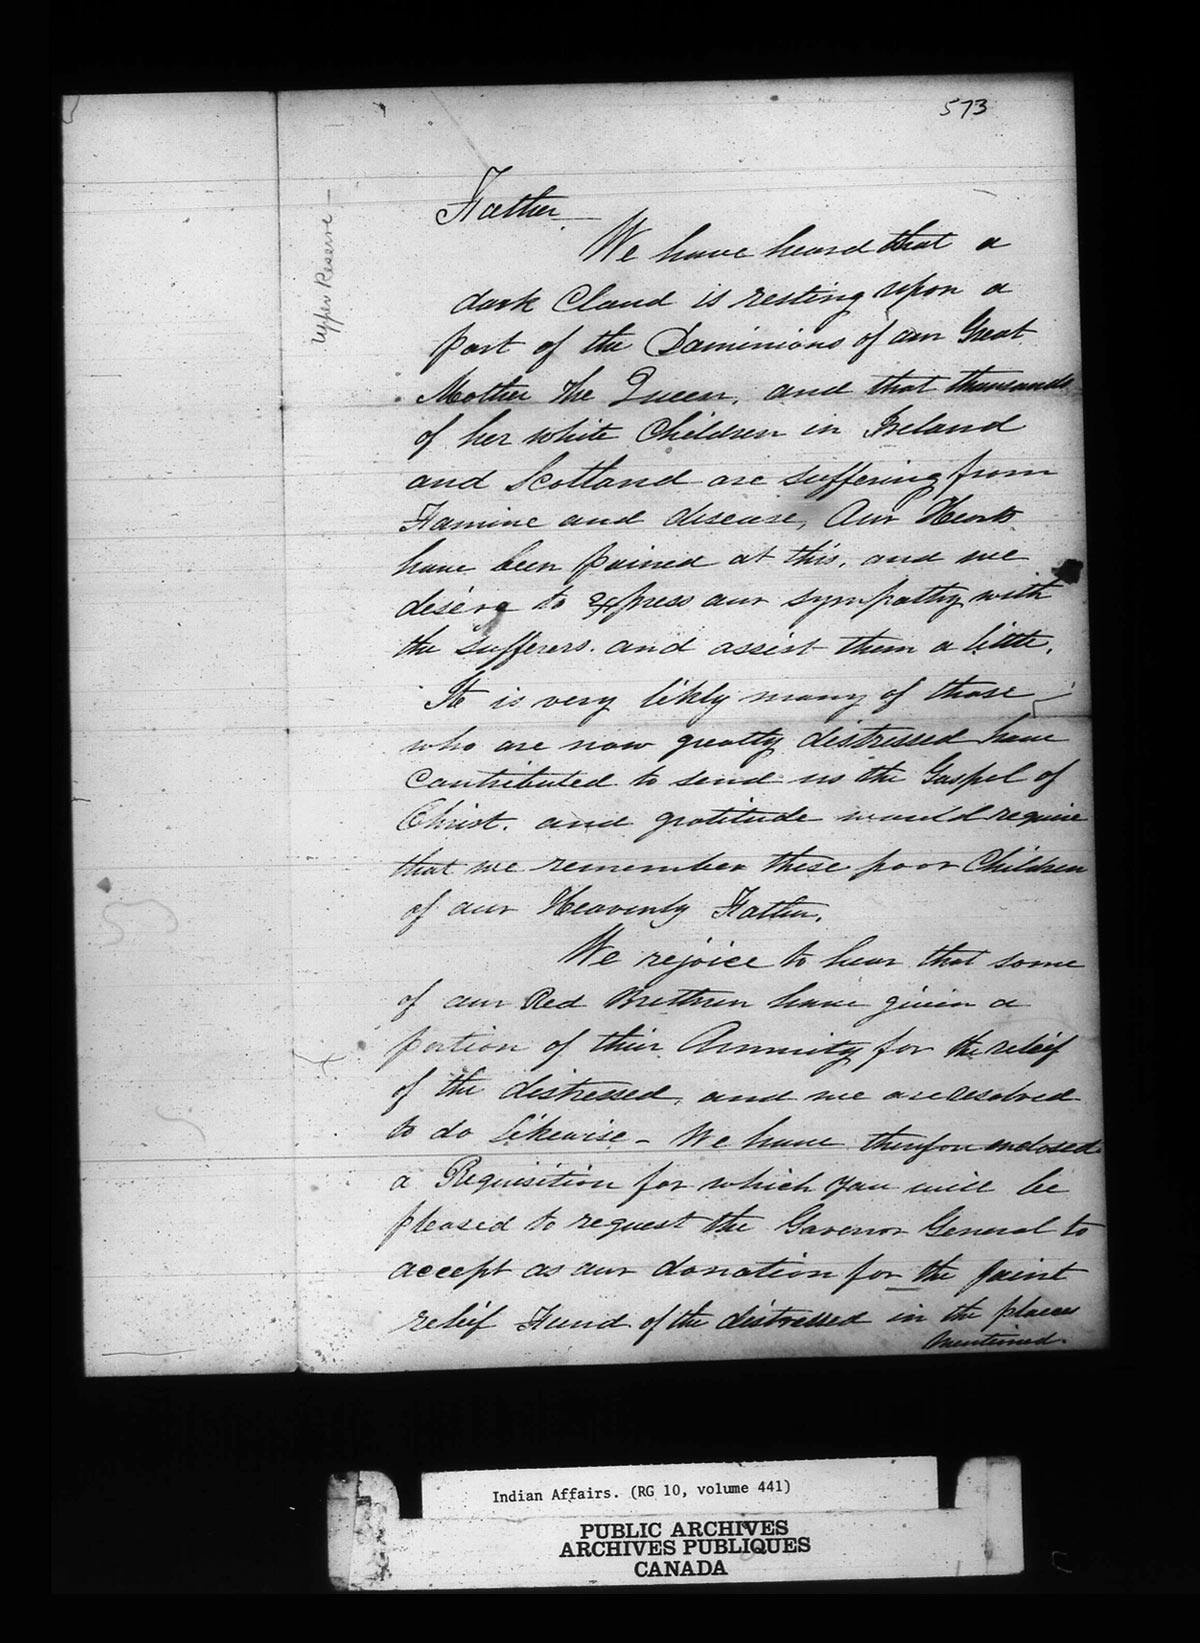 573
Upper Reserve -
Father
We have heard that a
dark Cloud is resting upon a
part of the Dominions of our Great
Mother the Queen, and that thousands
of her white Children in Ireland
and Scotland are suffering from
Famine and disease, Our Hearts
have been pained at this, and we
desire to express our sympathy with
the sufferers. and assist them a little.
It is very likly many of those
who are now greatly distressed have
Contributed to send us the Gospel of
Christ. and gratitude would require
that we remember these poor Children
of our Heavenly Father.
We rejoice to hear that some
of our Red Brethren have given a
portion of their Annuity for the relief
of the distressed, and we are resolved
to do likewise - We have therefore enclosed
a Requisition for which you will be
pleased to request the Govenor General to
accept as our donation for the joint
relief Fund of the distressed in the places
mentioned.
Indian Affairs. (RG 10, volume 441)
PUBLIC ARCHIVES
ARCHIVES PUBLIQUES
CANADA